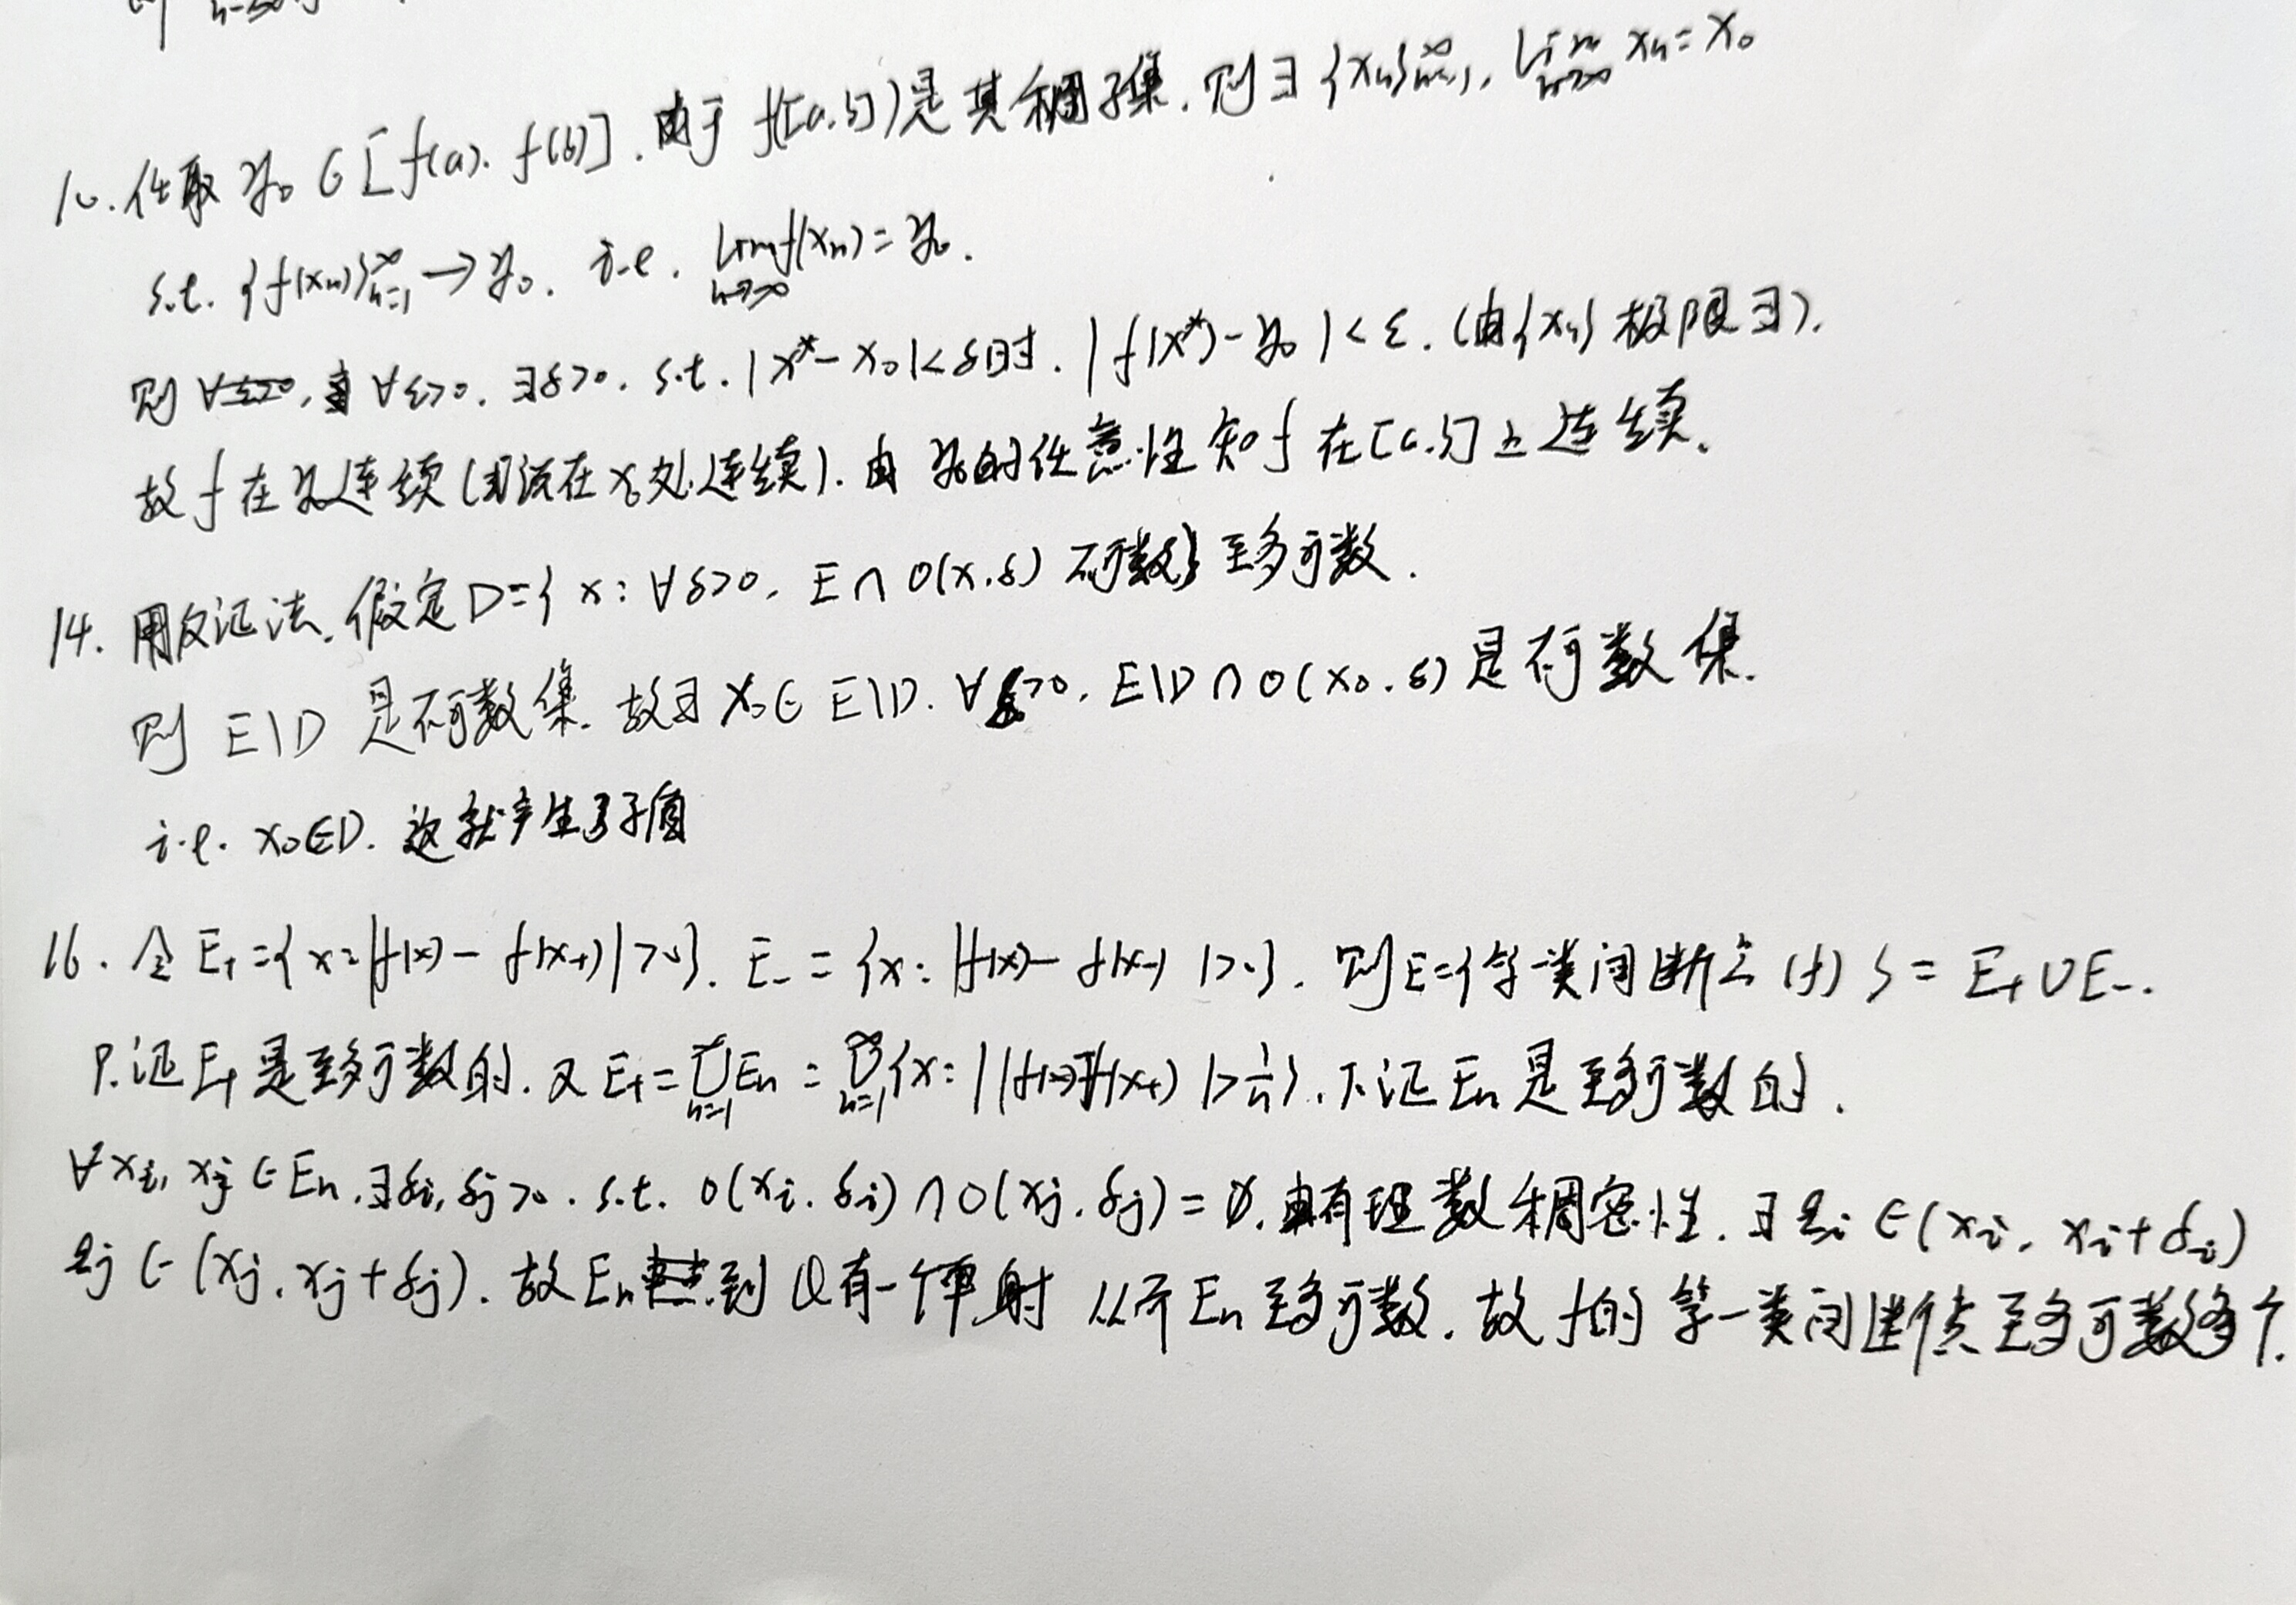 10. 任取 y₀ ∈ [f(a), f(b)]. 由于 f([a,b]) 是其稠子集. 则 ∃ {xₙ}ₙ₌₁^∞, lim_{n→∞} xₙ = x₀
s.t. {f(xₙ)}ₙ₌₁^∞ → y₀. i.e. lim_{n→∞} f(xₙ) = y₀.
则 ∀ε>0, ∀ε>0. ∃δ>0. s.t. |x*-x₀|<δ时. |f(x*)-y₀|<ε. (由{xₙ}极限∃).
故 f 在 y₀连续 (应该在 x₀处连续). 由 y₀的任意性知 f 在[a,b]上连续.
14. 用反证法. 假定 D={x: ∀δ>0, E∩O(x,δ) 不可数} 至多可数.
则 E\D 是不可数集. 故∃ x₀∈E\D. ∀δ>0, E\D∩O(x₀,δ) 是不可数集.
i.e. x₀∈D. 这就产生了矛盾
16. 令 E₊={x:|f(x)-f(x₊)|>0}. E₋={x:|f(x)-f(x₋)|>0}. 则E={第一类间断点(f)}=E₊∪E₋.
只证E₊是至多可数的. 又 E₊=⋃ₙ₌₁^∞Eₙ=⋃ₙ₌₁^∞{x:|f(x)-f(x₊)|>1/n}. 下证Eₙ是至多可数的.
∀xᵢ, xⱼ∈Eₙ, ∃δᵢ, δⱼ>0. s.t. O(xᵢ,δᵢ)∩O(xⱼ,δⱼ)=∅. 由有理数稠密性. ∃ qᵢ∈(xᵢ, xᵢ+δᵢ)
qⱼ∈(xⱼ, xⱼ+δⱼ). 故Eₙ到Q有一个单射 从而Eₙ至多可数. 故 f的第一类间断点至多可数多个.